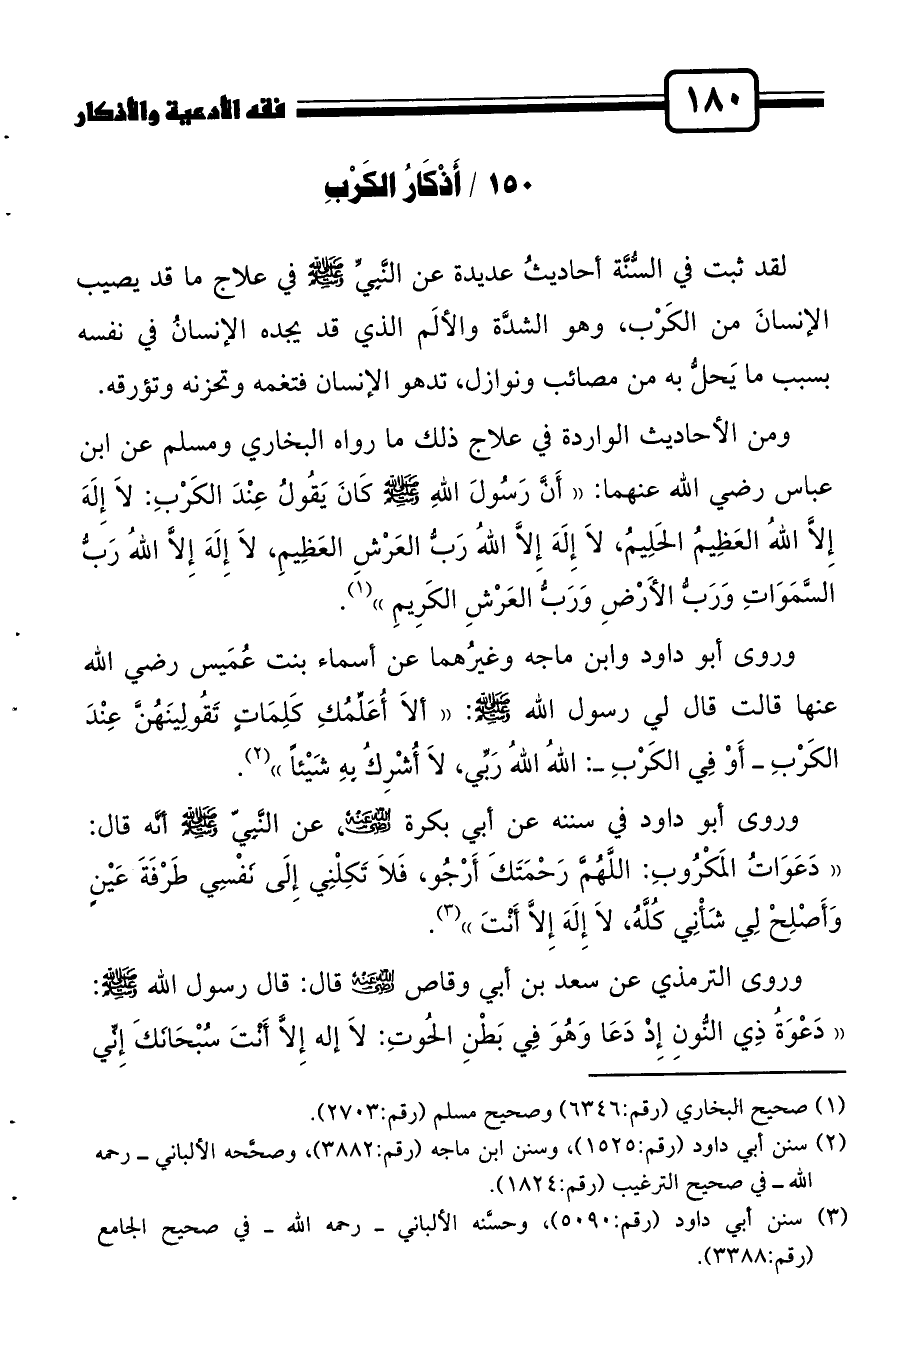 فقه الأدعية والأذكار ١٨٠
١٥٠ / أَذْكَارُ الكَرْبِ
لقد ثبت في السُّنَّة أحاديثُ عديدة عن النَّبيِّ ﷺ في علاج ما قد يصيب
الإنسانَ من الكَرْب، وهو الشدَّة والألَم الذي قد يجده الإنسانُ في نفسه
بسبب ما يَحلُّ به من مصائب ونوازل، تدهو الإنسان فتغمه وتحزنه وتؤرقه.
ومن الأحاديث الواردة في علاج ذلك ما رواه البخاري ومسلم عن ابن
عباس رضي الله عنهما: « أَنَّ رَسُولَ اللهِ ﷺ كَانَ يَقُولُ عِنْدَ الكَرْبِ: لاَ إِلَهَ
إِلاَّ اللهُ العَظِيمُ الحَلِيمُ، لاَ إِلَهَ إِلاَّ اللهُ رَبُّ العَرْشِ العَظِيمِ، لاَ إِلَهَ إِلاَّ اللهُ رَبُّ
السَّمَوَاتِ وَرَبُّ الأَرْضِ وَرَبُّ العَرْشِ الكَرِيمِ »(١).
وروى أبو داود وابن ماجه وغيرُهما عن أسماء بنت عُمَيس رضي الله
عنها قالت قال لي رسول الله ﷺ: « ألاَ أُعَلِّمُكِ كَلِمَاتٍ تَقُولِينَهُنَّ عِنْدَ
الكَرْبِ ـ أَوْ فِي الكَرْبِ ـ: اللهُ اللهُ رَبِّي، لاَ أُشْرِكُ بِهِ شَيْئاً »(٢).
وروى أبو داود في سننه عن أبي بكرة رضي الله عنه، عن النَّبيّ ﷺ أنَّه قال:
« دَعَوَاتُ المَكْرُوبِ: اللَّهُمَّ رَحْمَتَكَ أَرْجُو، فَلاَ تَكِلْنِي إِلَى نَفْسِي طَرْفَةَ عَيْنٍ
وَأَصْلِحْ لِي شَأْنِي كُلَّهُ، لاَ إِلَهَ إِلاَّ أَنْتَ »(٣).
وروى الترمذي عن سعد بن أبي وقاص رضي الله عنه قال: قال رسول الله ﷺ:
« دَعْوَةُ ذِي النُّونِ إِذْ دَعَا وَهُوَ فِي بَطْنِ الحُوتِ: لاَ إله إِلاَّ أَنْتَ سُبْحَانَكَ إِنِّي
(١) صحيح البخاري (رقم:٦٣٤٦) وصحيح مسلم (رقم:٢٧٠٣).
(٢) سنن أبي داود (رقم:١٥٢٥)، وسنن ابن ماجه (رقم:٣٨٨٢)، وصحَّحه الألباني ـ رحمه
الله ـ في صحيح الترغيب (رقم:١٨٢٤).
(٣) سنن أبي داود (رقم:٥٠٩٠)، وحسَّنه الألباني ـ رحمه الله ـ في صحيح الجامع
(رقم:٣٣٨٨).